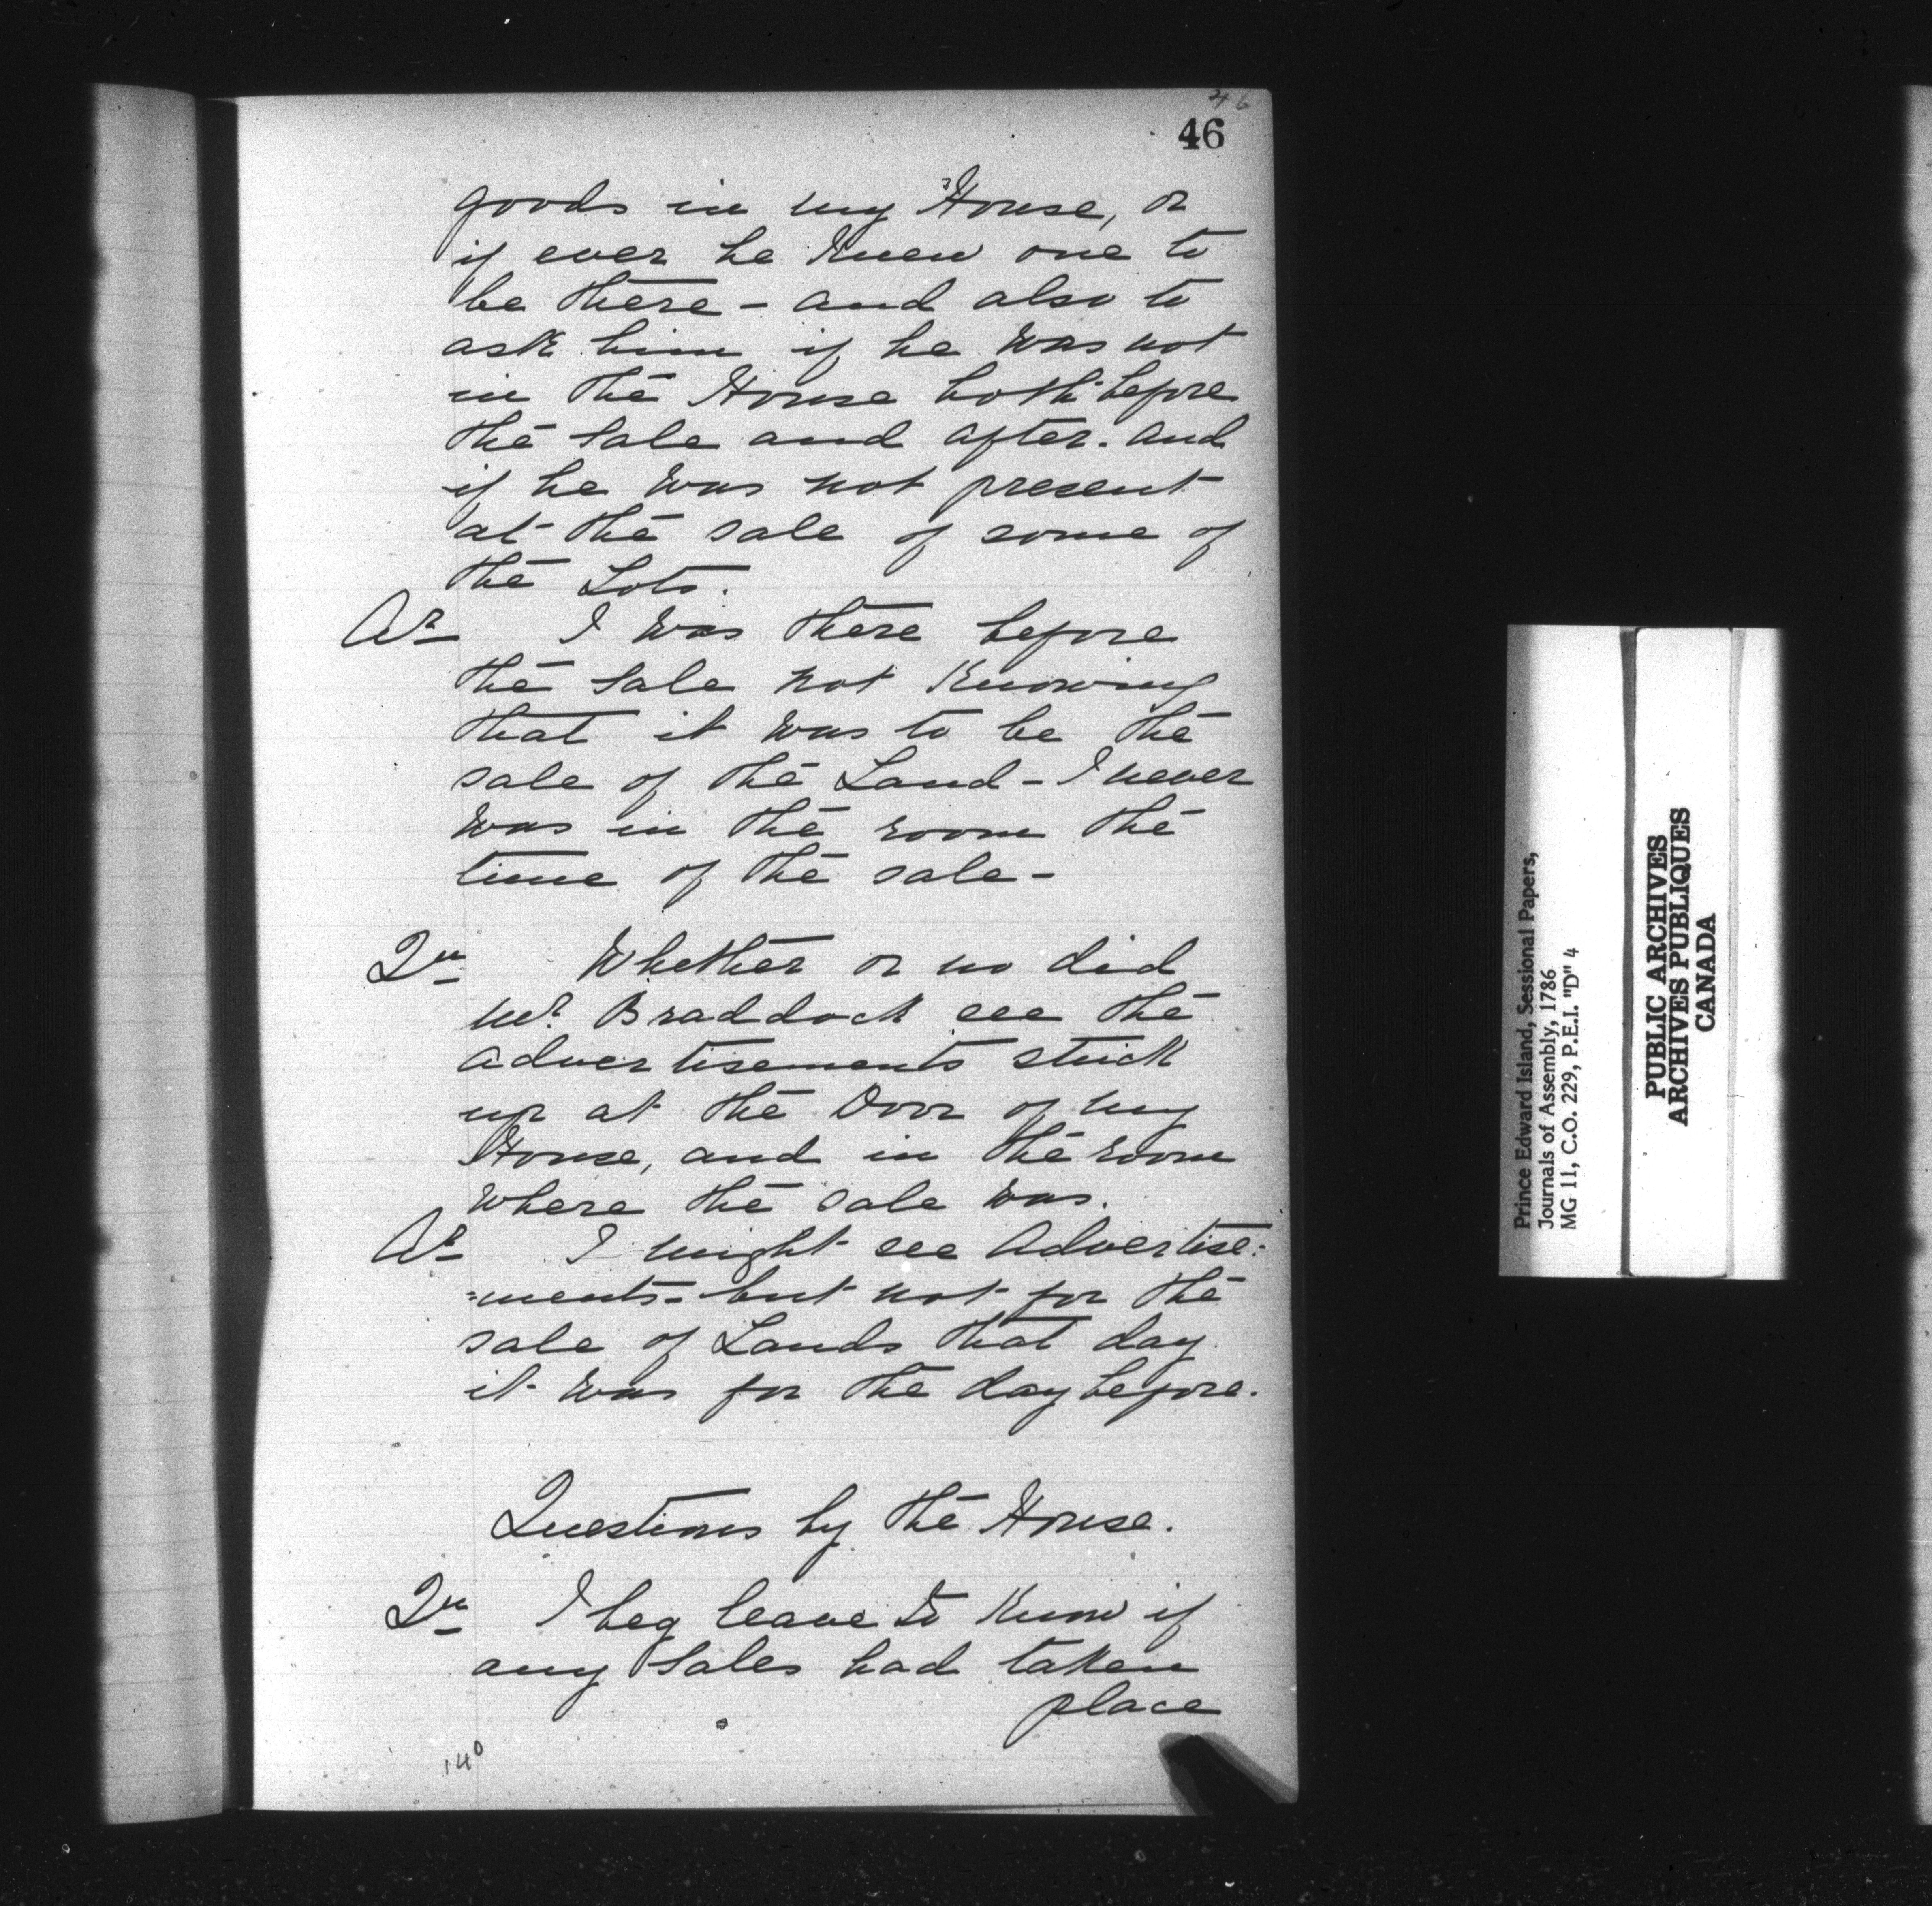 46
46
goods in my House, or
if ever he knew one to
be there - and also to
ask him if he was not
in the House both before
the Sale and after. and
if he was not present
at the sale of some of
the Lots.
Ar I was there before
the Sale not knowing
that it was to be the
sale of the Land - I never
was in the room the
time of the sale -
Qu Whether or no did
Mr. Braddock see the
advertisements stuck
up at the Door of my
House, and in the room
where the sale was.
Ar I might see Advertise:
:ments - but not for the
sale of Lands that day
it was for the day before.
Questions by the House.
Qu I beg leave to know if
any Sales had taken
place
140
Prince Edward Island, Sessional Papers,
Journals of Assembly, 1786
MG 11, C.O. 229, P.E.I. "D" 4
PUBLIC ARCHIVES
ARCHIVES PUBLIQUES
CANADA